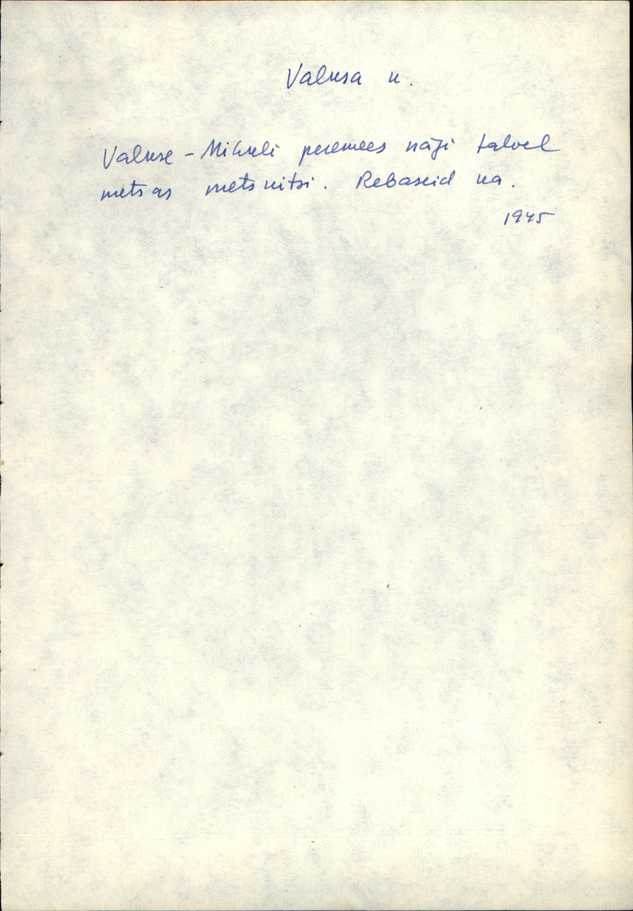 Valusa k.
Valuse - Mihkli peremees nägi talvel
metsas metskitsi. Rebaseid ka.
1945